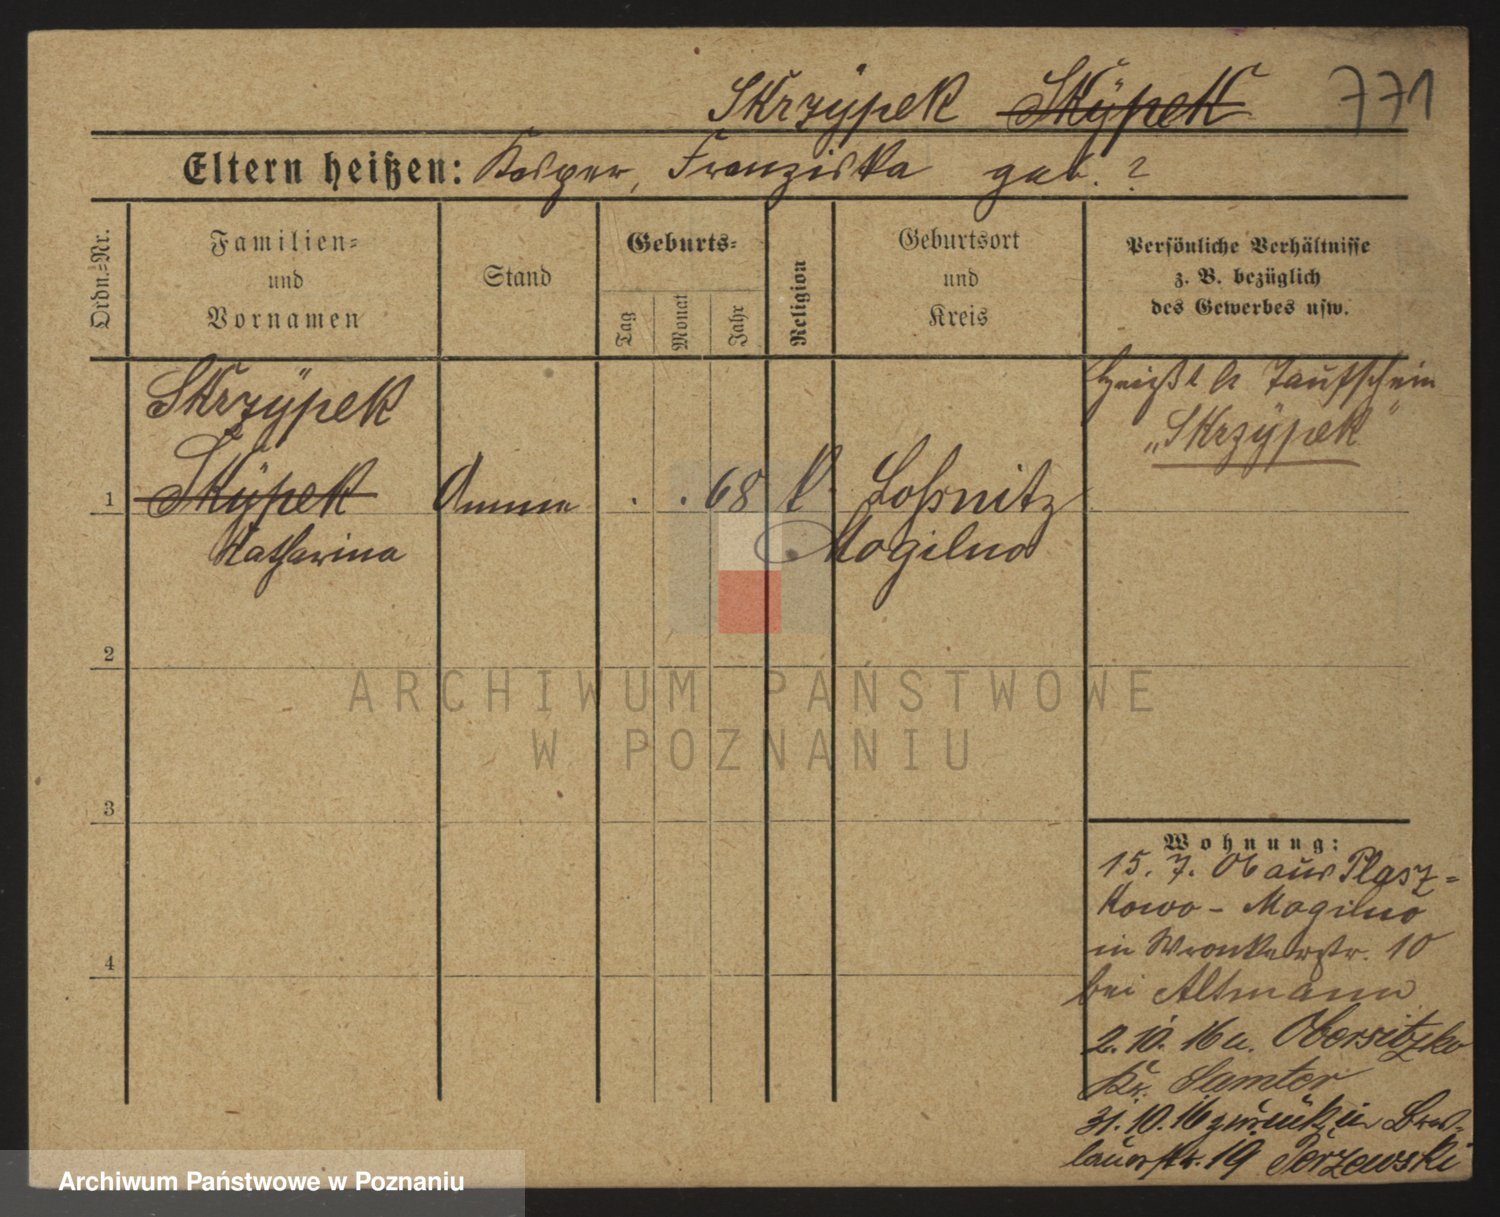 Skrzÿpek Skÿpek 771
Eltern heißen: Kasper, Franziska geb. ?
Ordn.=Nr.
Familien=
und
Vornamen
Stand
Geburts=
Tag
Monat
Jahr
Religion
Geburtsort
und
Kreis
Persönliche Verhältnisse
z. B. bezüglich
des Gewerbes usw.
Heißt lt Taufschein
„Skrzÿpek"
Skrzÿpek
1 Skÿpek Amme . . 68 k. Loßnitz
Katharina Mogilno
2
ARCHIWUM PAŃSTWOWE
W POZNANIU
3
4
Wohnung:
15. 7. 06 aus Plasz=
kowo - Mogilno
in Wronkerstr. 10
bei Altmann
2. 10. 16 n. Obersitzko
Kr. Samter
31. 10. 16 zurück in Bres=
lauerstr. 19 Porzewski
Archiwum Państwowe w Poznaniu